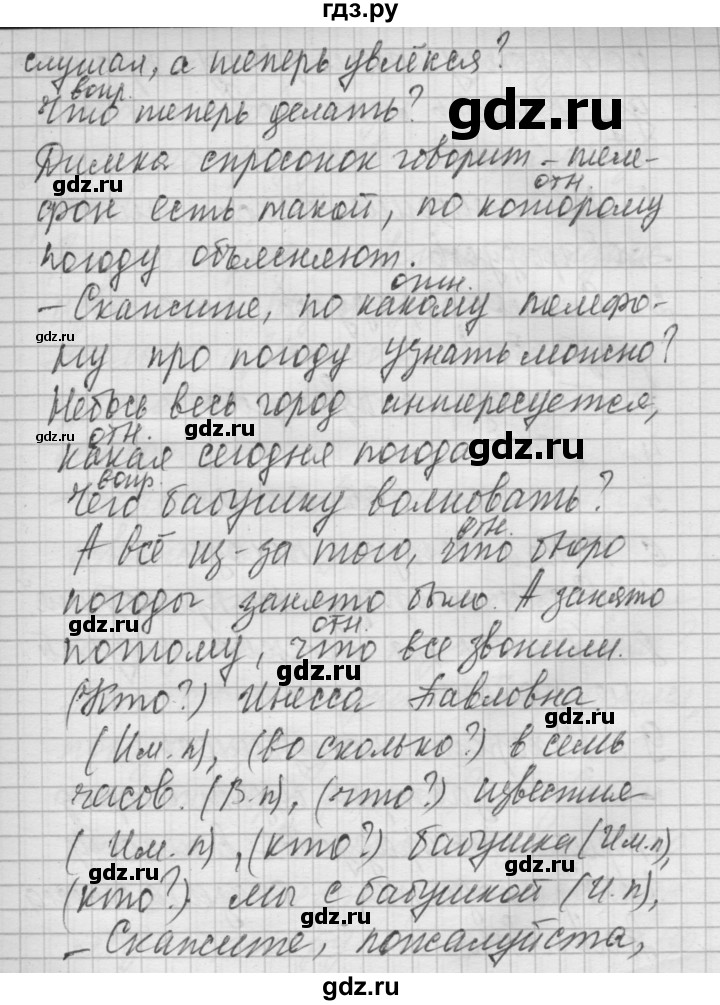 гдз.ру
слушал, а теперь увлёкся?
вопр.
Что теперь делать?
gdz.ru
Димка спросонок говорит – теле-
gdz.ru
отн.
фон есть такой, по которому
погоду объясняют.
gdz.ru
отн.
– Скажите, по какому телефо-
gdz.ru
му про погоду узнать можно?
Небось весь город интересуется,
gdz.ru
gdz.ru
отн.
какая сегодня погода
gdz.ru
вопр.
Чего бабушку волновать?
отн.
А всё из-за того, что бюро
погоды занято было. А занято
gdz.ru
отн.
потому, что все звонили.
gdz.ru
(Кто?) Инесса Павловна
gdz.ru
(Им.п), (во сколько?) в семь
часов. (В.п), (что?) известия
(Им.п), (кто?) бабушка (Им.п),
gdz.ru
gdz.ru
(кто?) мы с бабушкой (И.п),
gdz.ru
– Скажите, пожалуйста,
gdz.ru